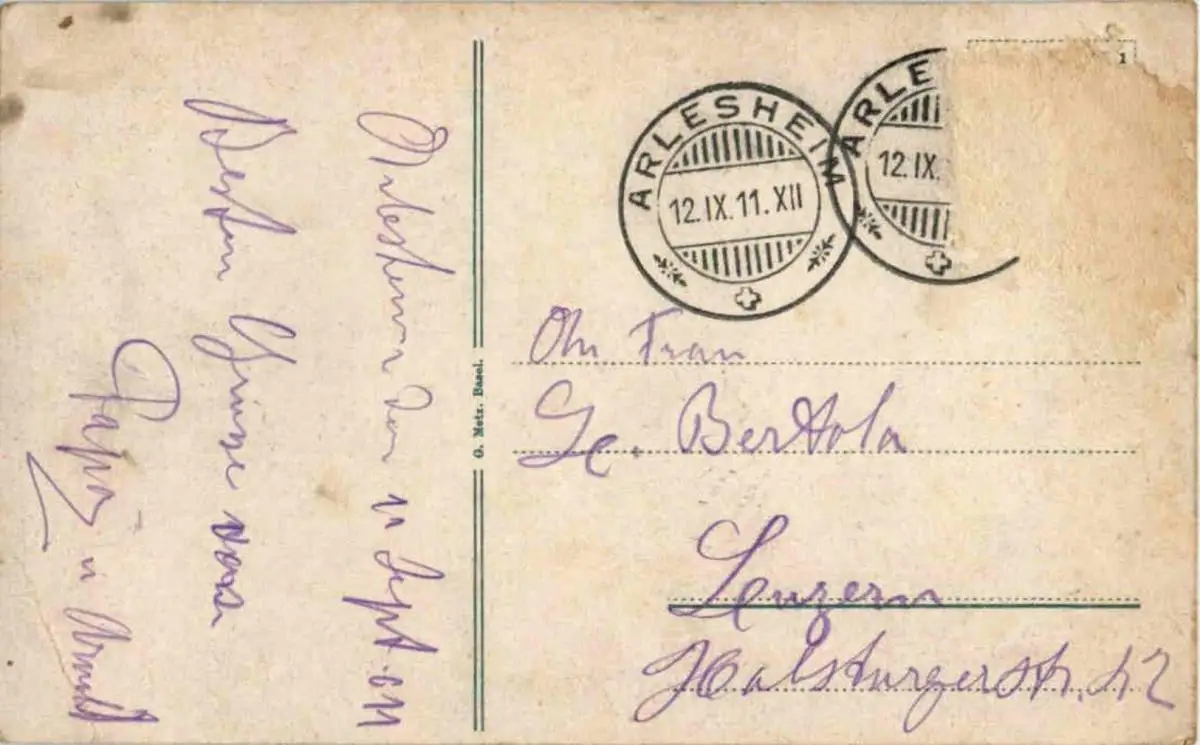 Arlesheim den 11 Sept. 011
Besten Grüsse von
Papa u
G. Metz, Basel.
1
ARLESHEIM
12.IX.11.XII
ARLE
12.IX.
Frau
Bertola
Luzern
Habsburgerstr. 42